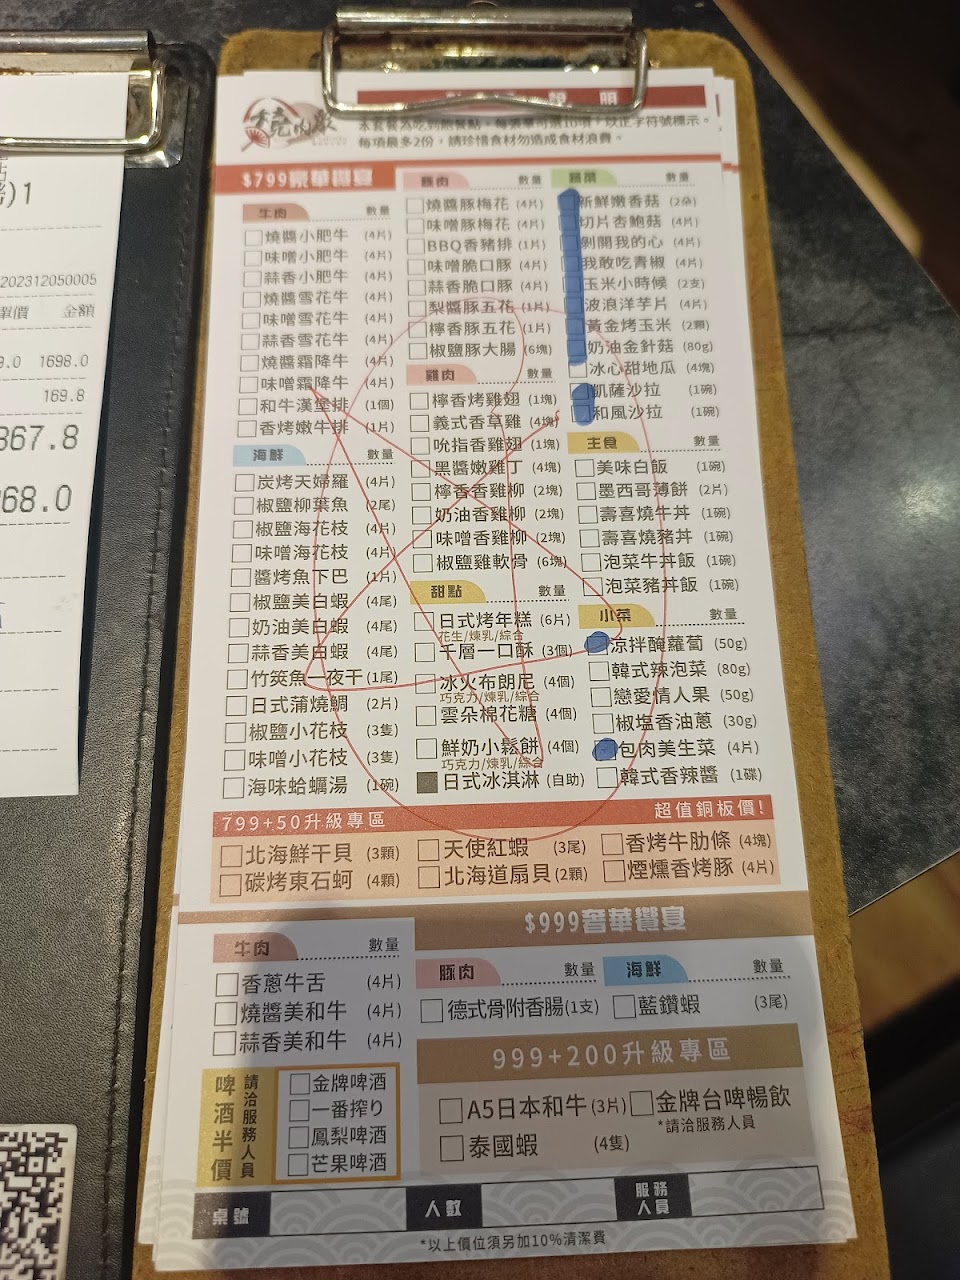 )1
202312050005
單價 金額
9.0 1698.0
169.8
867.8
68.0
燒肉殿
說 明
本套餐為吃到飽餐點，每張單可點10項，以正字符號標示。
每項最多2份，請珍惜食材勿造成食材浪費。
$799豪華饗宴
牛肉 數量
燒醬小肥牛 (4片)
味噌小肥牛 (4片)
蒜香小肥牛 (4片)
燒醬雪花牛 (4片)
味噌雪花牛 (4片)
蒜香雪花牛 (4片)
燒醬霜降牛 (4片)
味噌霜降牛 (4片)
和牛漢堡排 (1個)
香烤嫩牛排 (1片)
海鮮 數量
炭烤天婦羅 (4片)
椒鹽柳葉魚 (2尾)
椒鹽海花枝 (4片)
味噌海花枝 (4片)
醬烤魚下巴 (1片)
椒鹽美白蝦 (4尾)
奶油美白蝦 (4尾)
蒜香美白蝦 (4尾)
竹筴魚一夜干 (1尾)
日式蒲燒鯛 (2片)
椒鹽小花枝 (3隻)
味噌小花枝 (3隻)
海味蛤蠣湯 (1碗)
豚肉 數量
燒醬豚梅花 (4片)
味噌豚梅花 (4片)
BBQ香豬排 (1片)
味噌脆口豚 (4片)
蒜香脆口豚 (4片)
梨醬豚五花 (1片)
檸香豚五花 (1片)
椒鹽豚大腸 (6塊)
雞肉 數量
檸香烤雞翅 (1塊)
義式香草雞 (4塊)
吮指香雞翅 (1塊)
黑醬嫩雞丁 (4塊)
檸香香雞柳 (2塊)
奶油香雞柳 (2塊)
味噌香雞柳 (2塊)
椒鹽雞軟骨 (6塊)
甜點 數量
日式烤年糕 (6片)
花生/煉乳/綜合
千層一口酥 (3個)
冰火布朗尼 (4個)
巧克力/煉乳/綜合
雲朵棉花糖 (4個)
鮮奶小鬆餅 (4個)
巧克力/煉乳/綜合
日式冰淇淋 (自助)
蔬菜 數量
新鮮嫩香菇 (2朵)
切片杏鮑菇 (4片)
剝開我的心 (4片)
我敢吃青椒 (4片)
玉米小時候 (2支)
波浪洋芋片 (4片)
黃金烤玉米 (2顆)
奶油金針菇 (80g)
冰心甜地瓜 (4塊)
凱薩沙拉 (1碗)
和風沙拉 (1碗)
主食 數量
美味白飯 (1碗)
墨西哥薄餅 (2片)
壽喜燒牛丼 (1碗)
壽喜燒豬丼 (1碗)
泡菜牛丼飯 (1碗)
泡菜豬丼飯 (1碗)
小菜 數量
涼拌醃蘿蔔 (50g)
韓式辣泡菜 (80g)
戀愛情人果 (50g)
椒塩香油蔥 (30g)
包肉美生菜 (4片)
韓式香辣醬 (1碟)
799+50升級專區 超值銅板價!
北海鮮干貝 (3顆) 天使紅蝦 (3尾) 香烤牛肋條 (4塊)
碳烤東石蚵 (4顆) 北海道扇貝 (2顆) 煙燻香烤豚 (4片)
$999奢華饗宴
牛肉 數量
香蔥牛舌 (4片)
燒醬美和牛 (4片)
蒜香美和牛 (4片)
豚肉 數量
德式骨附香腸 (1支)
海鮮 數量
藍鑽蝦 (3尾)
999+200升級專區
A5日本和牛 (3片) 金牌台啤暢飲
*請洽服務人員
泰國蝦 (4隻)
啤酒半價
請洽服務人員
金牌啤酒
一番搾り
鳳梨啤酒
芒果啤酒
桌號 人數 服務人員
*以上價位須另加10%清潔費